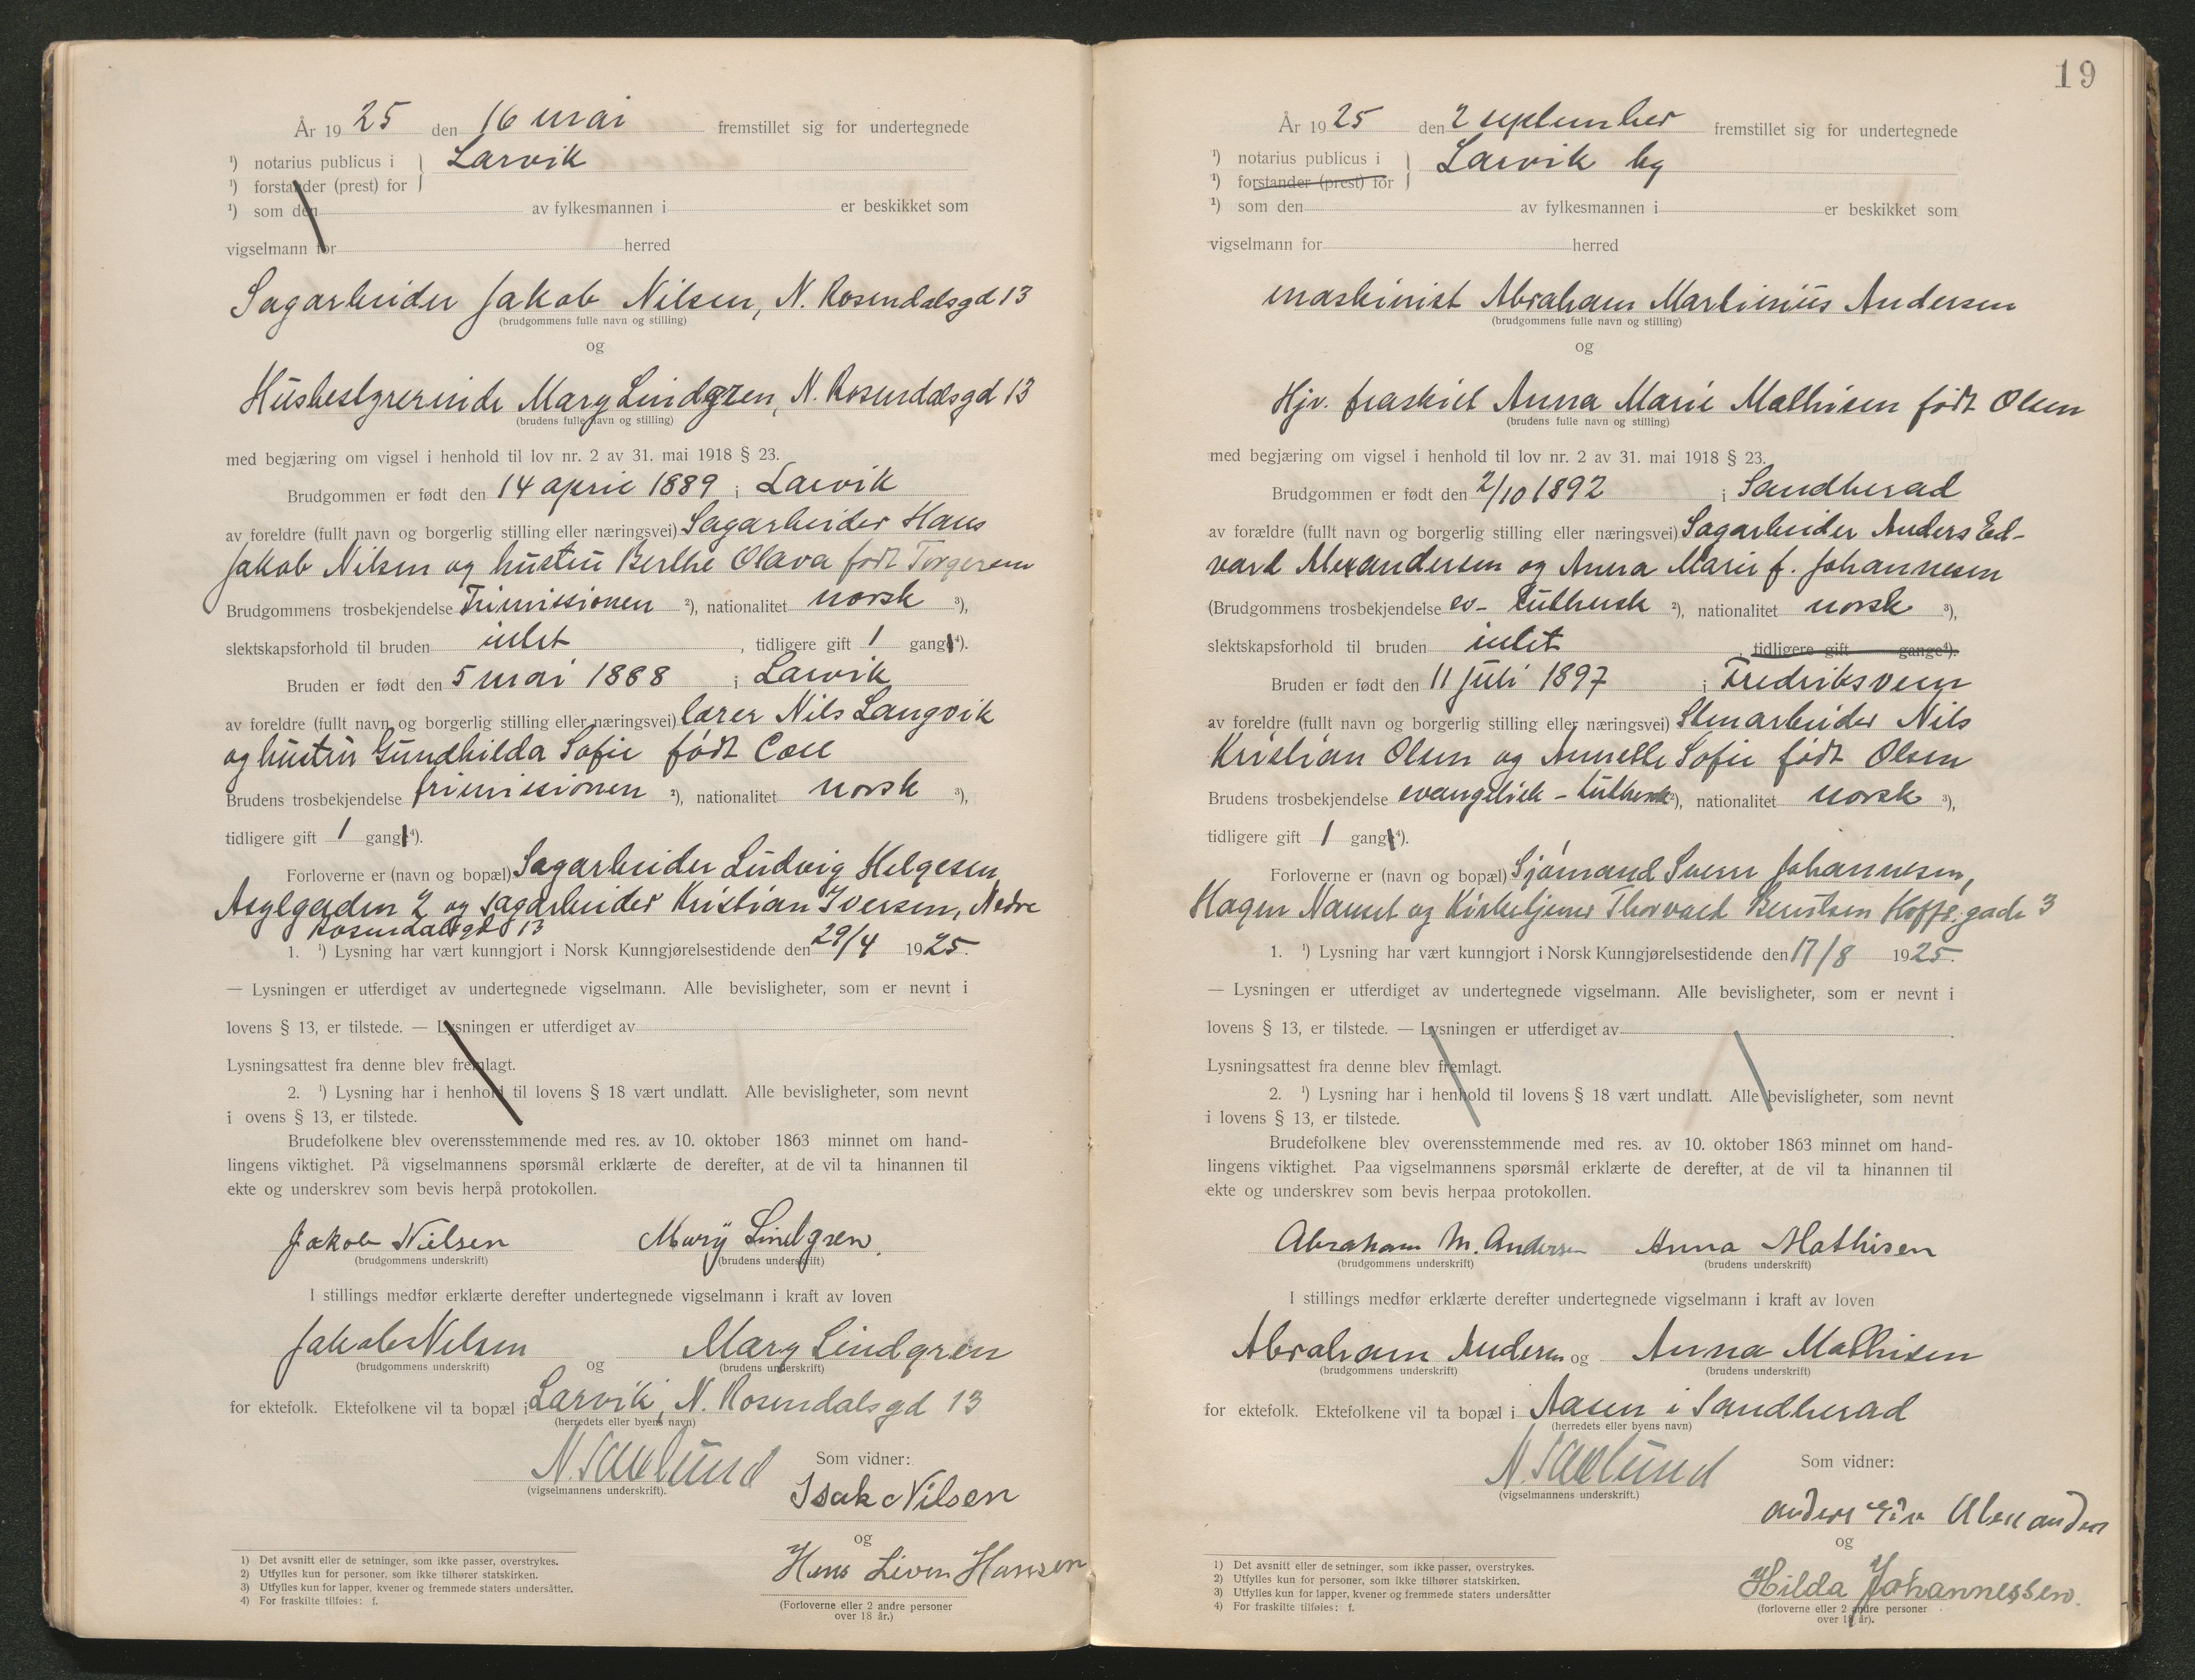 År 1925 den 16 mai fremstillet sig for undertegnede
¹) notarius publicus i } Larvik
¹) forstander (prest) for
¹) som den av fylkesmannen i er beskikket som
vigselmann for herred
Sagarbeider Jakob Nilsen, N. Rosendalsgd 13
(brudgommens fulle navn og stilling)
og
Husbestyrerinde Mary Lindgren, N. Rosendalsgd 13
(brudens fulle navn og stilling)
med begjæring om vigsel i henhold til lov nr. 2 av 31. mai 1918 § 23.
Brudgommen er født den 14 april 1889 i Larvik
av foreldre (fullt navn og borgerlig stilling eller næringsvei) Sagarbeider Hans
Jakob Nilsen og hustru Berthe Olava født Torgersen
Brudgommens trosbekjendelse Frimissionen ²), nationalitet norsk ³),
slektskapsforhold til bruden intet, tidligere gift 1 gang⁴).
Bruden er født den 5 mai 1888 i Larvik
av foreldre (fullt navn og borgerlig stilling eller næringsvei) lærer Nils Langvik
og hustru Gundhilda Sofie født Coll
Brudens trosbekjendelse frimissionen ²), nationalitet norsk ³),
tidligere gift 1 gang⁴).
Forloverne er (navn og bopæl) Sagarbeider Ludvig Helgesen
Asylgaden 2 og sagarbeider Kristian Iversen, Nedre
Rosendalsgd 13
1. ¹) Lysning har vært kunngjort i Norsk Kunngjørelsestidende den 29/4 1925.
— Lysningen er utferdiget av undertegnede vigselmann. Alle bevisligheter, som er nevnt i
lovens § 13, er tilstede. — Lysningen er utferdiget av
Lysningsattest fra denne blev fremlagt.
2. ¹) Lysning har i henhold til lovens § 18 vært undlatt. Alle bevisligheter, som nevnt
i ovens § 13, er tilstede.
Brudefolkene blev overensstemmende med res. av 10. oktober 1863 minnet om hand-
lingens viktighet. På vigselmannens spørsmål erklærte de derefter, at de vil ta hinannen til
ekte og underskrev som bevis herpå protokollen.
Jakob Nielsen Mary Lindgren.
(brudgommens underskrift) (brudens underskrift)
I stillings medfør erklærte derefter undertegnede vigselmann i kraft av loven
Jakob Nilsen og Mary Lindgren
(brudgommens underskrift) (brudens underskrift)
for ektefolk. Ektefolkene vil ta bopæl i Larvik, N. Rosendalsgd 13
(herredets eller byens navn)
Som vidner:
(vigselmannens underskrift).
Isak Nilsen
og
Hans Liven Hansen
(Forloverne eller 2 andre personer
over 18 år.)
1) Det avsnitt eller de setninger, som ikke passer, overstrykes.
2) Utfylles kun for personer, som ikke tilhører statskirken.
3) Utfylles kun for lapper, kvener og fremmede staters undersåtter.
4) For fraskilte tilføies: f.
19
År 1925 den 2 september fremstillet sig for undertegnede
¹) notarius publicus i } Larvik by
¹) forstander (prest) for
¹) som den av fylkesmannen i er beskikket som
vigselmann for herred
maskinist Abraham Martinius Andersen
(brudgommens fulle navn og stilling)
og
Hjv. fraskilt Anna Marie Mathisen født Olsen
(brudens fulle navn og stilling)
med begjæring om vigsel i henhold til lov nr. 2 av 31. mai 1918 § 23.
Brudgommen er født den 2/10 1892 i Sandherad
av forældre (fullt navn og borgerlig stilling eller næringsvei) Sagarbeider Anders Ed-
vard Alexandersen og Anna Marie f. Johannesen
(Brudgommens trosbekjendelse ev- luthersk ²), nationalitet norsk ³),
slektskapsforhold til bruden intet, tidligere gift gange⁴).
Bruden er født den 11 juli 1897 i Fredriksvern
av foreldre (fullt navn og borgerlig stilling eller næringsvei) Stenarbeider Nils
Kristian Olsen og Annette Sofie født Olsen
Brudens trosbekjendelse evangelisk - luthersk ²), nationalitet norsk ³),
tidligere gift 1 gang⁴).
Forloverne er (navn og bopæl) Sjømand Sverre Johannesen,
Hagen Nanset og Kirketjener Thorvald Berntsen Hoffs.gade 3
1. ¹) Lysning har vært kunngjort i Norsk Kunngjørelsestidende den 17/8 1925.
— Lysningen er utferdiget av undertegnede vigselmann. Alle bevisligheter, som er nevnt i
lovens § 13, er tilstede. — Lysningen er utferdiget av
Lysningsattest fra denne blev fremlagt.
2. ¹) Lysning har i henhold til lovens § 18 vært undlatt. Alle bevisligheter, som nevnt
i lovens § 13, er tilstede.
Brudefolkene blev overensstemmende med res. av 10. oktober 1863 minnet om hand-
lingens viktighet. Paa vigselmannens spørsmål erklærte de derefter, at de vil ta hinannen til
ekte og underskrev som bevis herpaa protokollen.
Abraham M. Andersen Anna Mathisen
(brudgommens underskrift) (brudens underskrift)
I stillings medfør erklærte derefter undertegnede vigselmann i kraft av loven
Abraham Andersen og Anna Mathisen
(brudgommens underskrift) (brudens underskrift)
for ektefolk. Ektefolkene vil ta bopæl i Aasen i Sandherad
(herredets eller byens navn)
Som vidner:
(vigselmannens underskrift.)
Anders Edv Alexanders
og
Hilda Johannessen.
(forloverne eller 2 andre personer
over 18 år).
1) Det avsnitt eller de setninger, som ikke passer, overstrykes.
2) Utfylles kun for personer, som ikke tilhører statskirken.
3) Utfylles kun for lapper, kvener og fremmede staters undersåtter
4) For fraskilte tilføies: f.